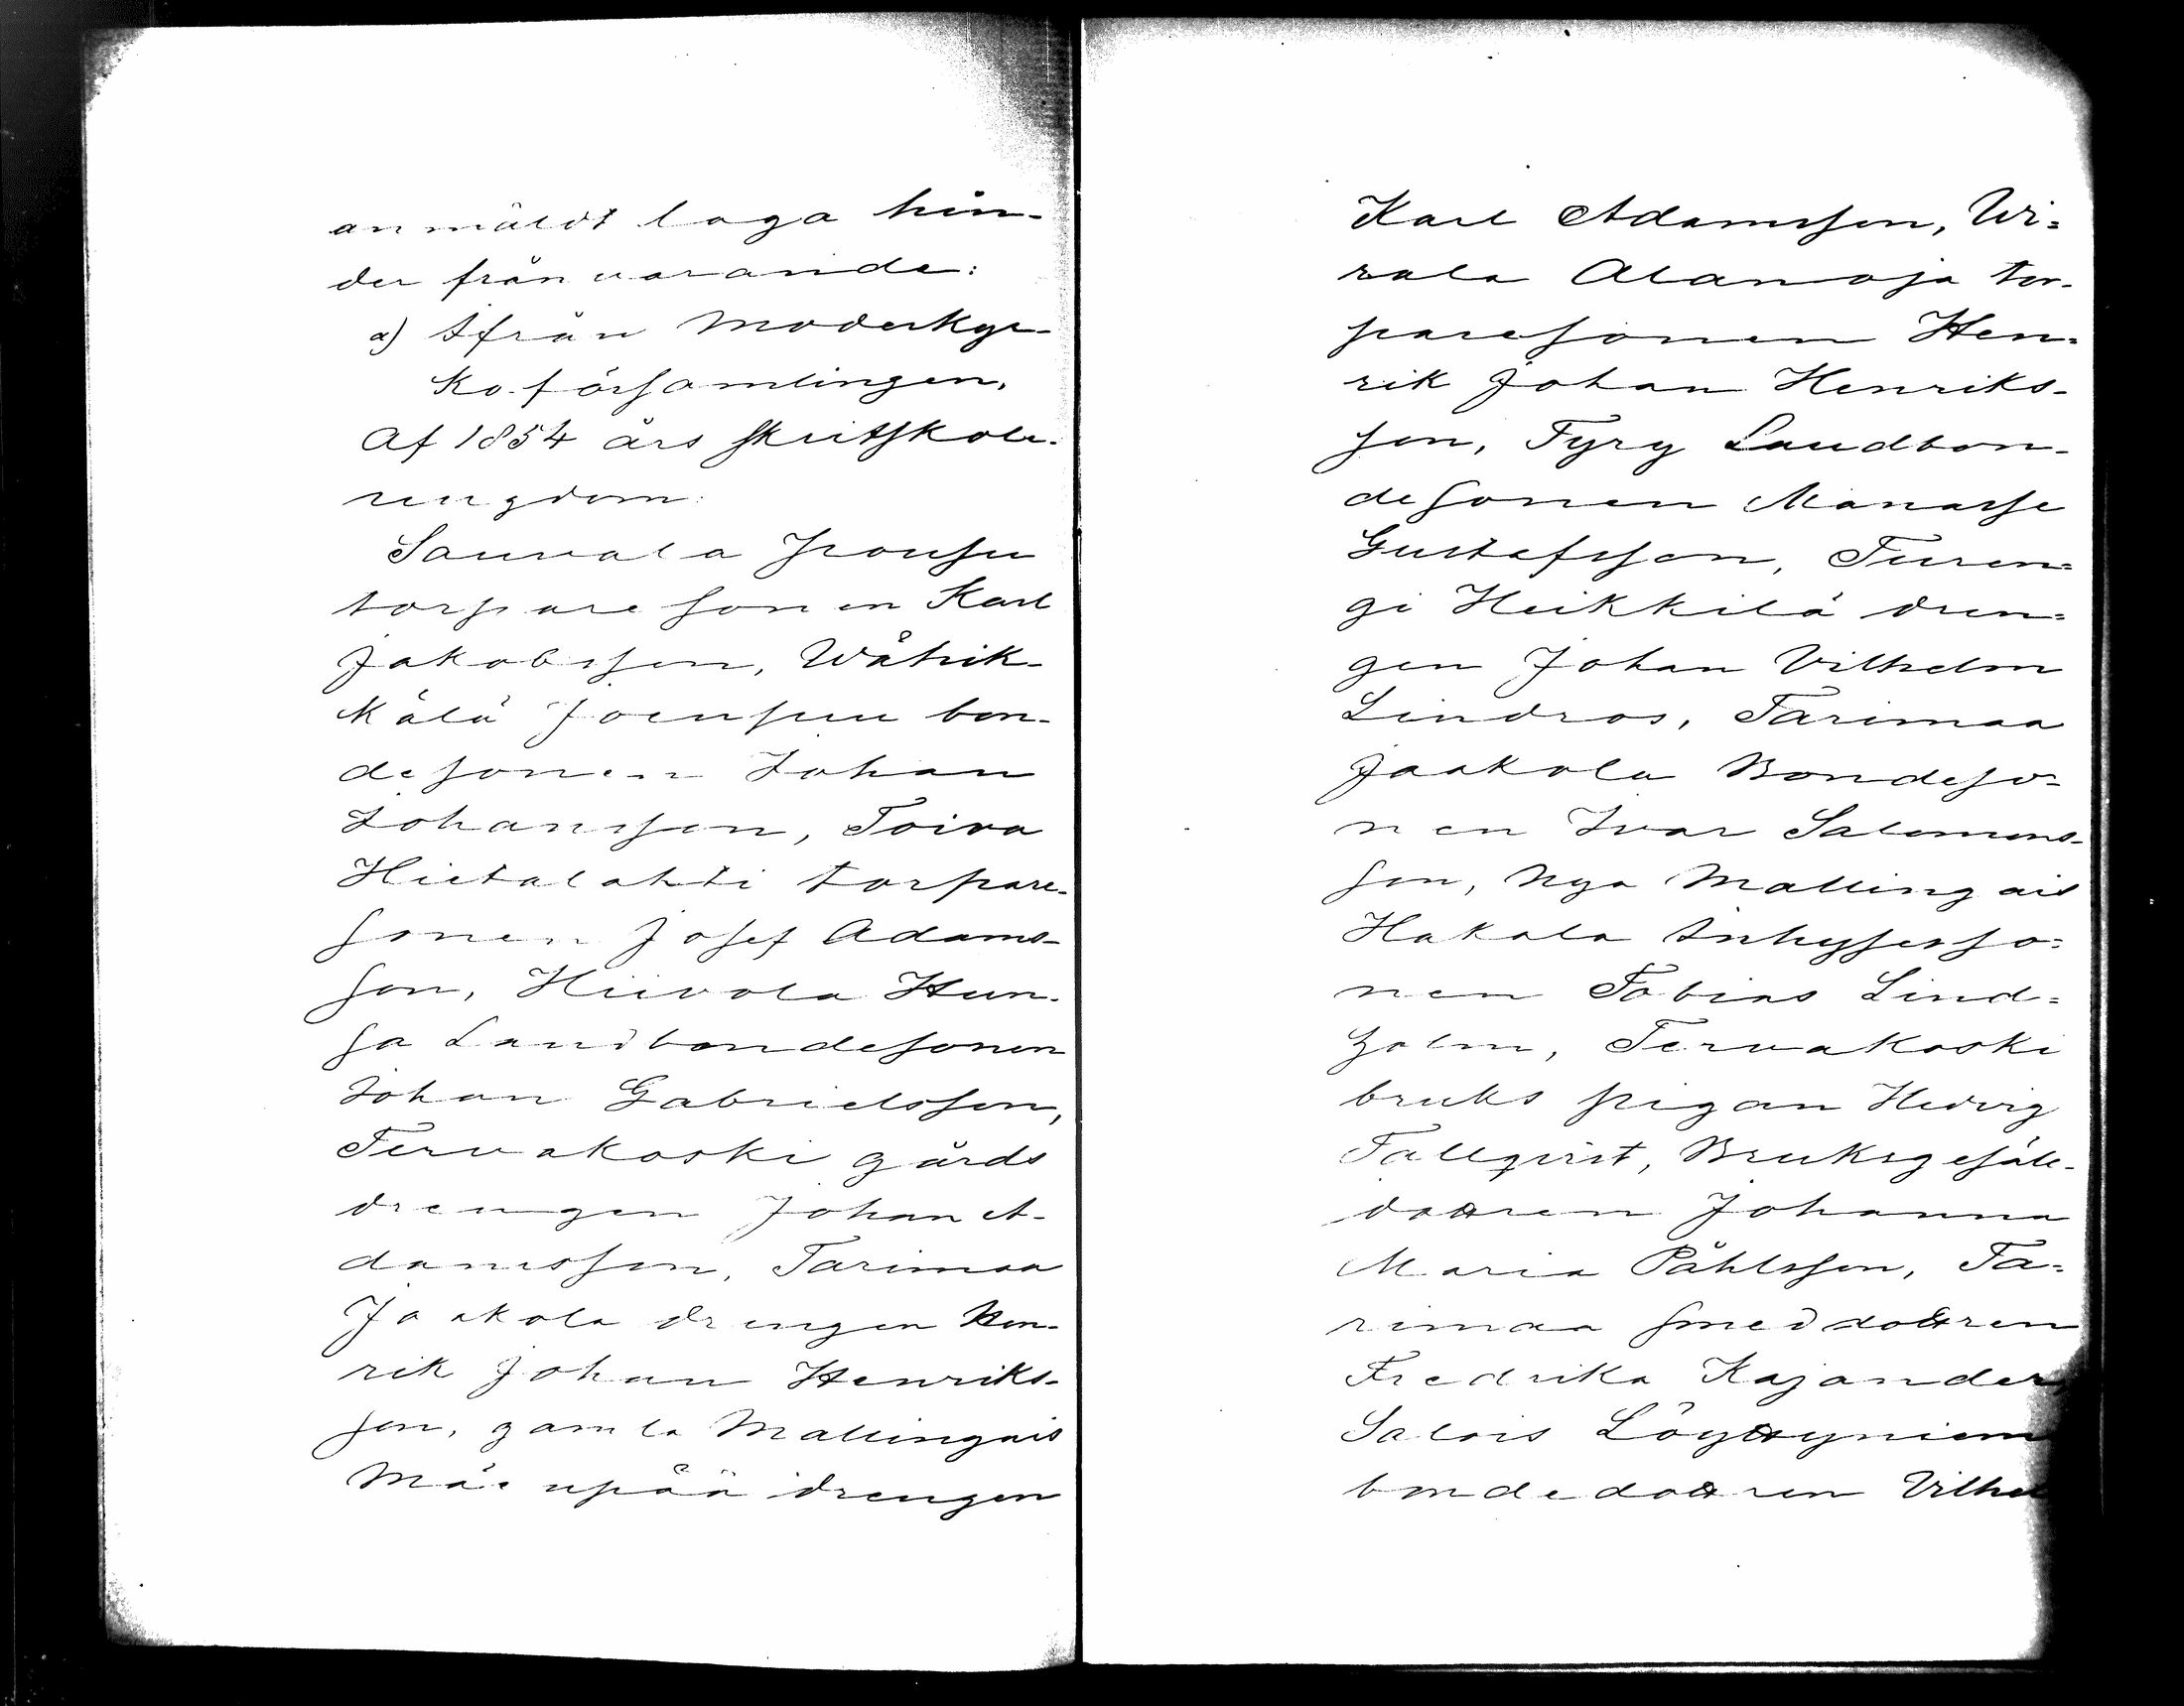 anmäldt laga hin-
der frånvarande:
a) Ifrån Moderkyr-
ko församlingen.
Af 1854 års skriftskole-
ungdom:
Sauvala Jpousu
torparesonen Karl
Jakobsson, Wähik-
kälä Joensuu bon-
desonen Johan
Johansson, Toiva
Hietalahti torpare-
sonen Josef Adams-
son, Hiivola Hun-
sa Landbondesonen
Johan Gabrielsson,
Tervakoski gårds
drengen Johan A-
damsson, Tarimaa
Jaakola drengen Hen-
rik Johan Henriks-
son, gamla Mallingais
Mäenpää drengen
Karl Adamsson, Wi=
rala Alanoja tor-
paresonen Hen=
rik Johan Henriks-
son, Tyry Landbon-
desonen Manasse
Gustafsson, Turen=
gi Heikkilä dren=
gen Johan Vilhelm
Lindros, Tarimaa
Jaakola Bondeso=
nen Ivar Salomons-
son, Nya Mallingais
Hakala Inhysesso=
nen Tobias Lind=
holm, Tervakoski
bruks pigan Hedvig
Tallqvist, Bruksgesäll-
dottren Johanna
Maria Påhlsson, Ta=
rimaa smeddottren
Fredrika Kajander
Salois Löyttyniem
bondedottren Vilhel